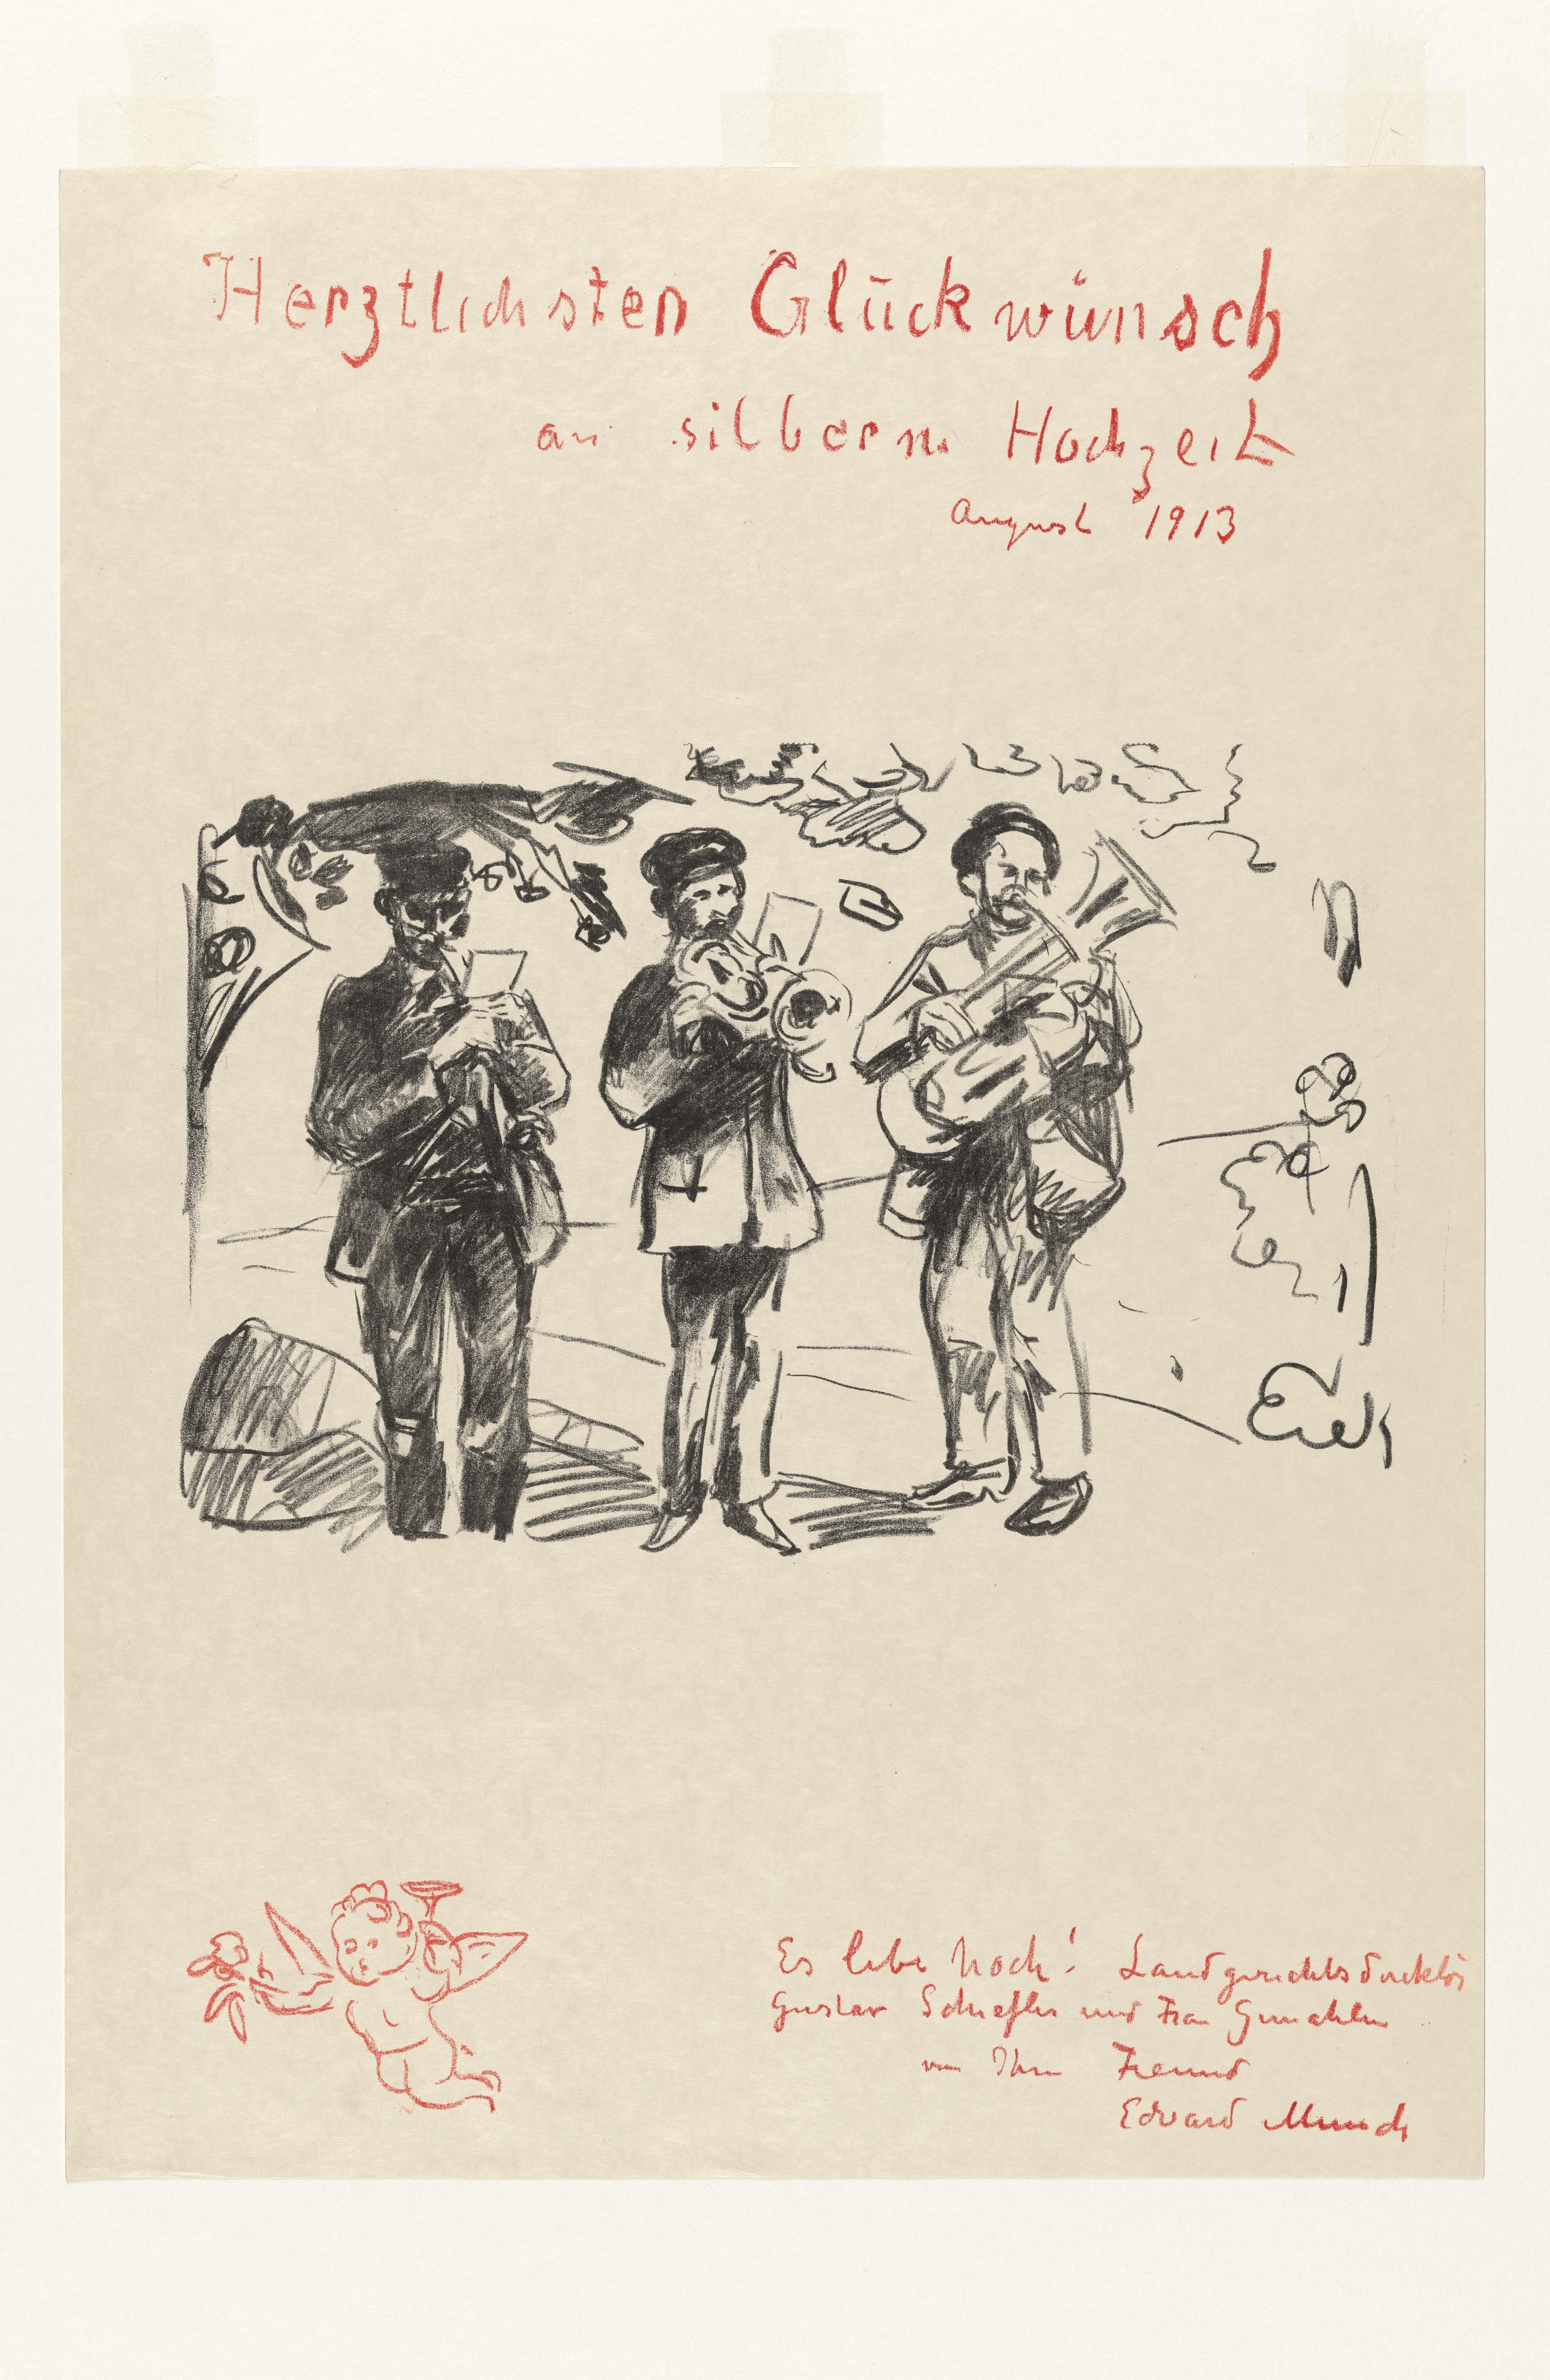 Herztlichsten Glückwünsch
an silbern Hochzeit
August 1913
Es lebe hoch! Landgerichtsdirektör
Gustav Schiefler und Frau Gemahlin
von Ihrem Freund
Edvard Munch